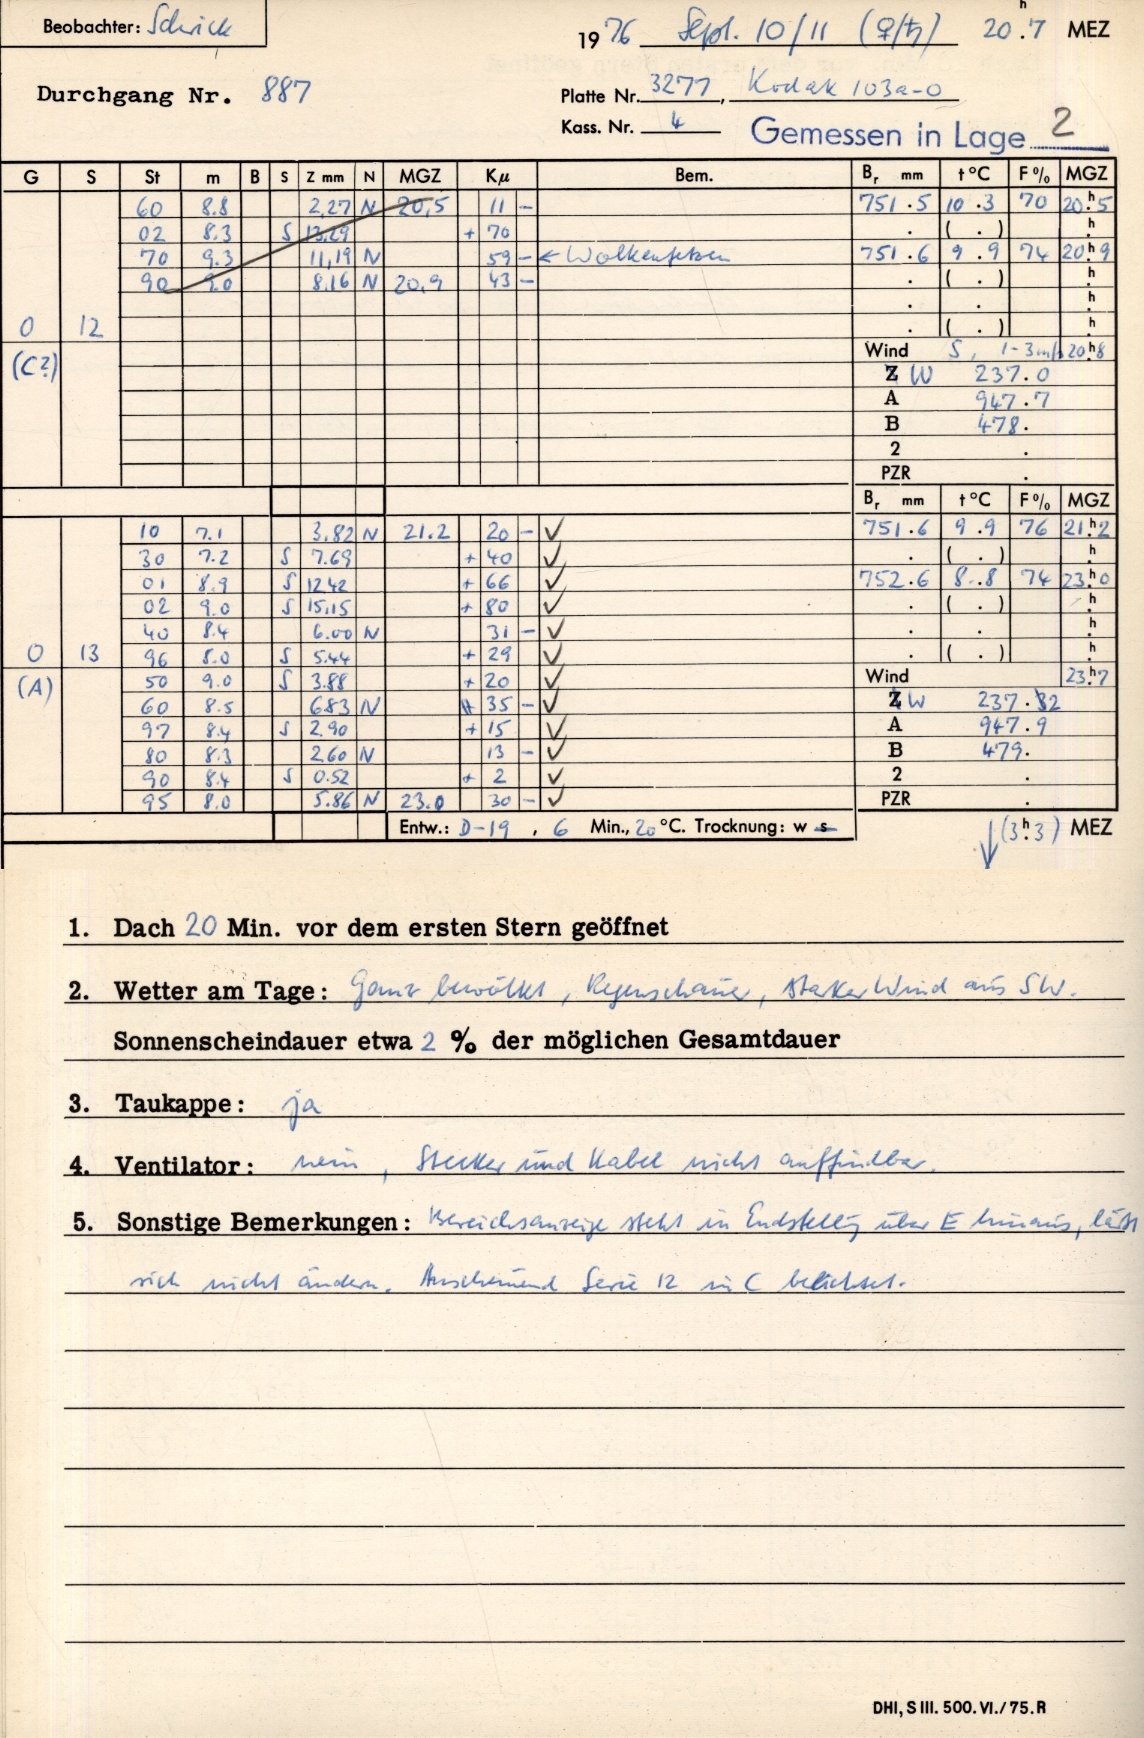 Beobachter: Schrick
1976 Sept. 10/11 (♀/♄) 20.h7 MEZ
Durchgang Nr. 887
Platte Nr. 3277, Kodak 103a-O
Kass. Nr. 4 Gemessen in Lage 2
G S St m B S Z mm N MGZ Kμ Bem. Br mm t °C F % MGZ
60 8.8 2,27 N 20,5 11 – 751.5 10.3 70 20.h5
02 8.3 S 13,29 + 70 . ( . ) h.
70 9.3 11,19 N 59 – ← Wolkenfetzen 751.6 9.9 74 20.h9
90 9.0 8,16 N 20,9 43 – . ( . ) h.
. . h.
0 12 . ( . ) h.
(C?) Wind S, 1-3 m/s 20.h8
Z W 237.0
A 947.7
B 478.
2 .
PZR .
Br mm t °C F % MGZ
10 7.1 3,82 N 21.2 20 – ✓ 751.6 9.9 76 21.h2
30 7.2 S 7.69 + 40 ✓ . ( . ) h.
01 8.9 S 12,42 + 66 ✓ 752.6 8.8 74 23.h0
02 9.0 S 15,15 + 80 ✓ . ( . ) h.
40 8.4 6.00 N 31 – ✓ . . h.
0 13 96 8.0 S 5.44 + 29 ✓ . ( . ) h.
(A) 50 9.0 S 3.88 + 20 ✓ Wind 23.h7
60 8.5 6.83 N 35 – ✓ Z W 237.32
97 8.4 S 2,90 + 15 ✓ A 947.9
80 8.3 2,60 N 13 – ✓ B 479.
90 8.4 S 0.52 + 2 ✓ 2 .
95 8.0 5.86 N 23.0 30 – ✓ PZR .
Entw.: D-19, 6 Min., 20 °C. Trocknung: w s ↓ (3.h3) MEZ
1. Dach 20 Min. vor dem ersten Stern geöffnet
2. Wetter am Tage: Ganz bewölkt, Regenschauer, starker Wind aus SW.
Sonnenscheindauer etwa 2 % der möglichen Gesamtdauer
3. Taukappe: ja
4. Ventilator: nein, Stecker und Kabel nicht auffindbar.
5. Sonstige Bemerkungen: Bereichsanzeige steht in Endstellg über E hinaus, läßt
sich nicht ändern. Anscheinend Serie 12 in C belichtet.
DHI, S III. 500. VI./75. R